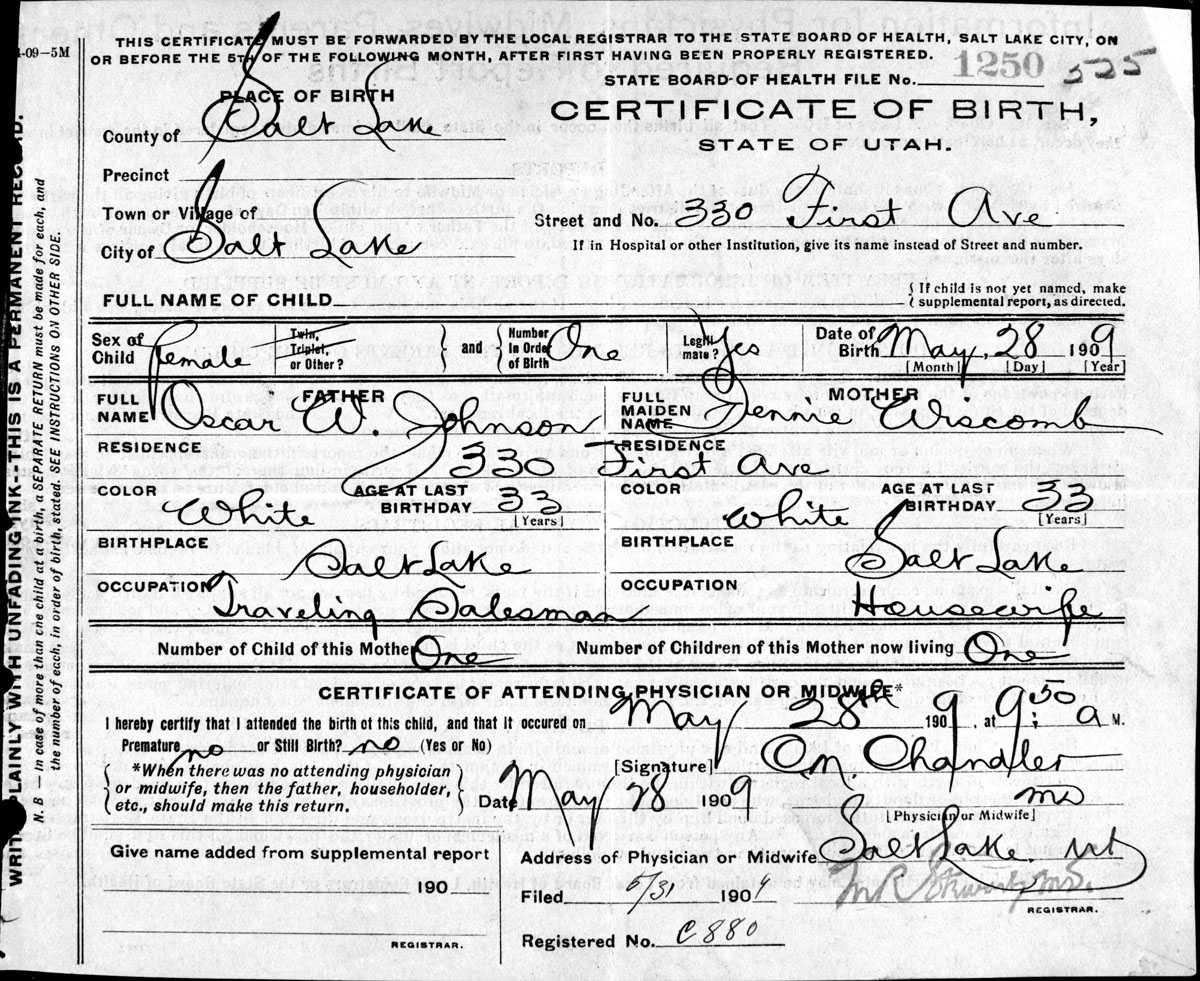 4-09-5M
THIS CERTIFICATE MUST BE FORWARDED BY THE LOCAL REGISTRAR TO THE STATE BOARD OF HEALTH, SALT LAKE CITY, ON
OR BEFORE THE 5TH OF THE FOLLOWING MONTH, AFTER FIRST HAVING BEEN PROPERLY REGISTERED.
STATE BOARD OF HEALTH FILE No. 1250 525
PLACE OF BIRTH
CERTIFICATE OF BIRTH,
County of Salt Lake
STATE OF UTAH.
Precinct
Town or Village of
Street and No. 330 First Ave
City of Salt Lake
If in Hospital or other Institution, give its name instead of Street and number.
FULL NAME OF CHILD
{ If child is not yet named, make
{ supplemental report, as directed.
Sex of Child Female
Twin, Triplet, or Other? } and { Number in Order of Birth One
Legitimate? Yes
Date of Birth May, 28 1909
[Month] [Day] [Year]
FATHER
MOTHER
FULL NAME Oscar W. Johnson
FULL MAIDEN NAME Jennie Erscomb
RESIDENCE
RESIDENCE
330 First Ave
COLOR White
AGE AT LAST BIRTHDAY 33
[Years]
COLOR White
AGE AT LAST BIRTHDAY 33
[Years]
BIRTHPLACE Salt Lake
BIRTHPLACE Salt Lake
OCCUPATION Traveling Salesman
OCCUPATION Housewife
Number of Child of this Mother One
Number of Children of this Mother now living One
CERTIFICATE OF ATTENDING PHYSICIAN OR MIDWIFE*
I hereby certify that I attended the birth of this child, and that it occured on May 28th 1909, at 9:50 a M.
Premature no or Still Birth? no (Yes or No)
[Signature] Chandler
MD
[Physician or Midwife]
{ *When there was no attending physician }
{ or midwife, then the father, householder, }
{ etc., should make this return. }
Date May 28 1909
Give name added from supplemental report
Address of Physician or Midwife Salt Lake. Ut
190
Filed 5/31 1909
REGISTRAR.
REGISTRAR.
Registered No. C880
WRITE PLAINLY WITH UNFADING INK--THIS IS A PERMANENT RECORD.
N. B In case of more than one child at a birth, a SEPARATE RETURN must be made for each, and
the number of each, in order of birth, stated. SEE INSTRUCTIONS ON OTHER SIDE.